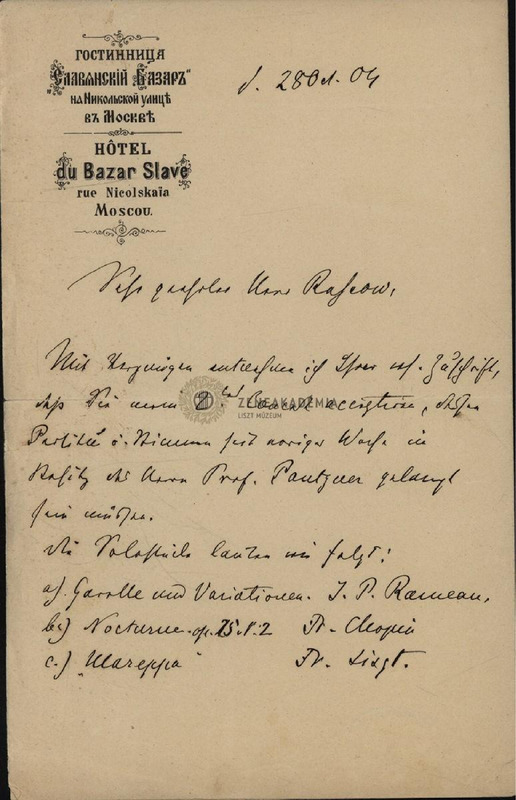 ГОСТИННИЦА
„Славянскій Базаръ“
на Никольской улицѣ
въ Москвѣ
HÔTEL
du Bazar Slave
rue Nicolskaïa
Moscou.
d. 28 04
Sehr geehrter Herr
Mit Vergnügen entnehme ich Ihrer Zuschrift,
daß Sie mein Concert acceptiren, dessen
ZENEAKADÉMIA
LISZT MÚZEUM
Partitur u. Stimmen seit voriger Woche im
Besitz des Herrn Prof. gelangt
sein müssen.
Die Solostücke lauten wie folgt:
a). Gavotte und Variationen. J. P. Rameau.
b.) Nocturne op. 15. N. 2 Fr. Chopin
c.) "Mazeppa" Fr. Liszt.